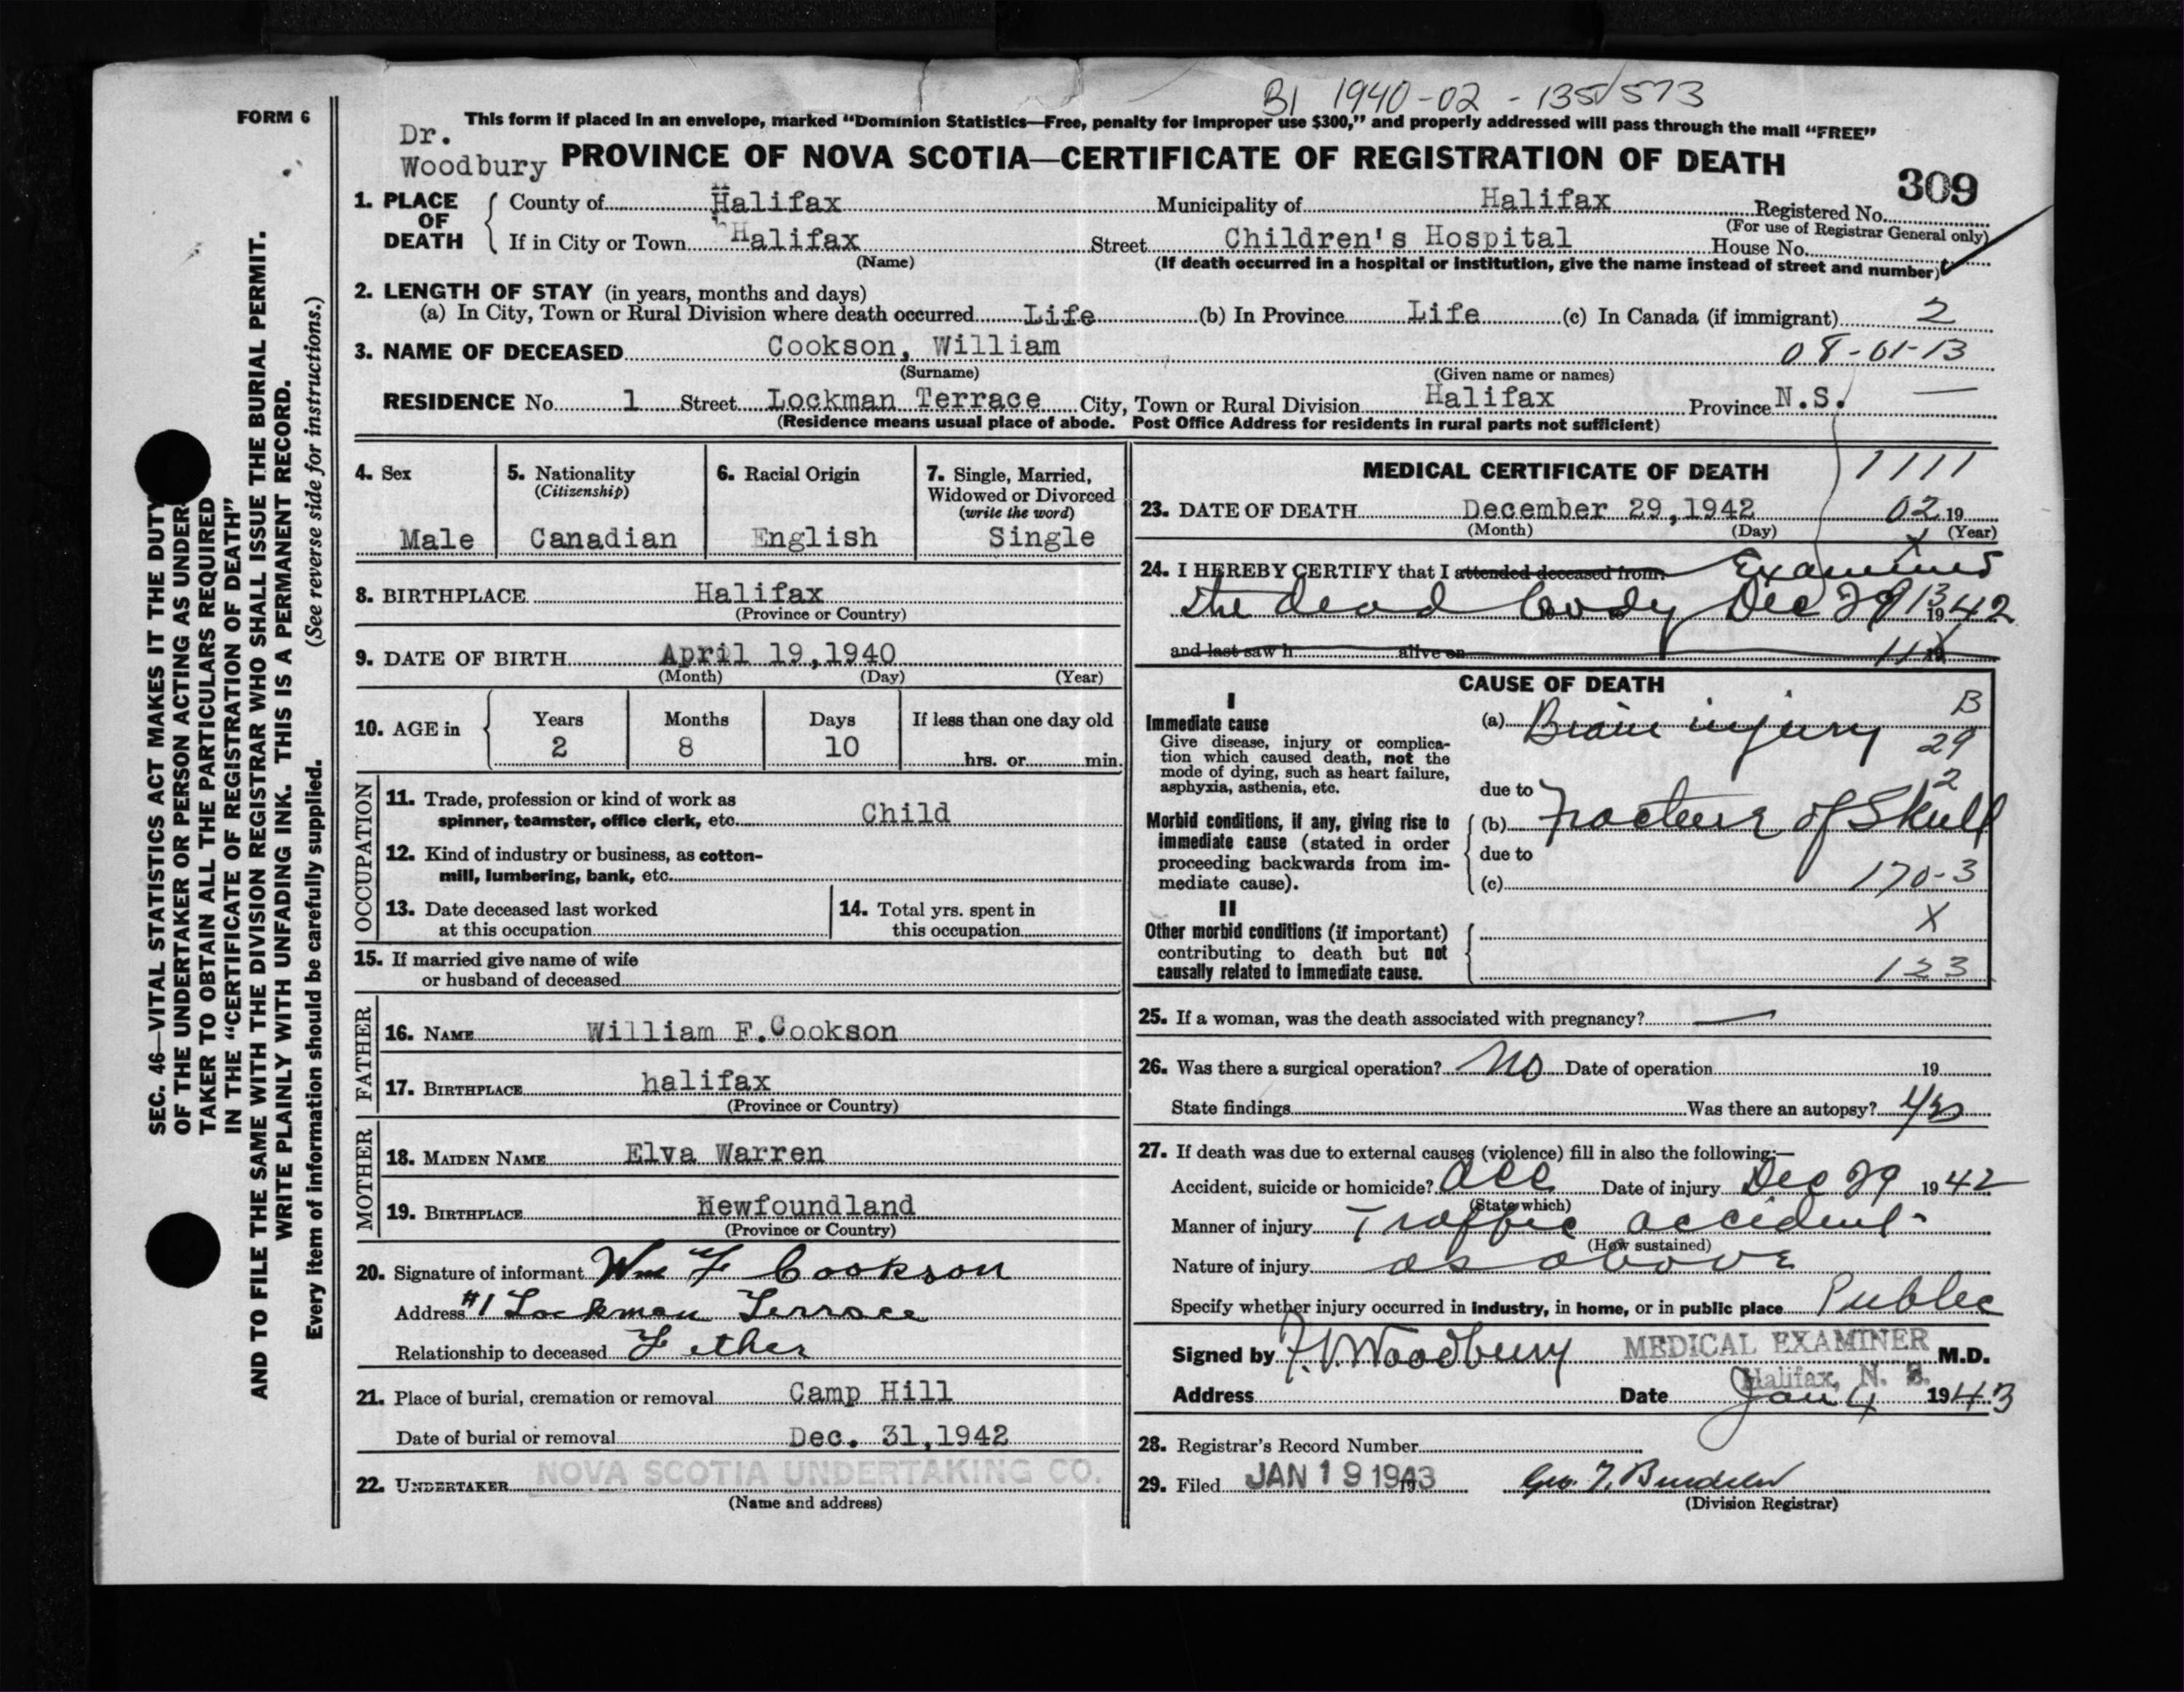 BI 1940-02-135/573
FORM 6
This form if placed in an envelope, marked "Dominion Statistics—Free, penalty for improper use $300," and properly addressed will pass through the mail "FREE"
Dr.
Woodbury
PROVINCE OF NOVA SCOTIA—CERTIFICATE OF REGISTRATION OF DEATH
309
1. PLACE OF DEATH
County of Halifax Municipality of Halifax Registered No.
(For use of Registrar General only)
If in City or Town Halifax Street Children's Hospital House No.
(Name) (If death occurred in a hospital or institution, give the name instead of street and number)
2. LENGTH OF STAY (in years, months and days)
(a) In City, Town or Rural Division where death occurred Life (b) In Province Life (c) In Canada (if immigrant) 2
3. NAME OF DECEASED Cookson, William 08-01-13
(Surname) (Given name or names)
RESIDENCE No. 1 Street Lockman Terrace City, Town or Rural Division Halifax Province N.S. —
(Residence means usual place of abode. Post Office Address for residents in rural parts not sufficient)
4. Sex
Male
5. Nationality
(Citizenship)
Canadian
6. Racial Origin
English
7. Single, Married,
Widowed or Divorced
(write the word)
Single
8. BIRTHPLACE Halifax
(Province or Country)
9. DATE OF BIRTH April 19,1940
(Month) (Day) (Year)
10. AGE in
Years Months Days If less than one day old
2 8 10 hrs. or min.
OCCUPATION
11. Trade, profession or kind of work as
spinner, teamster, office clerk, etc. Child
12. Kind of industry or business, as cotton-
mill, lumbering, bank, etc.
13. Date deceased last worked
at this occupation
14. Total yrs. spent in
this occupation
15. If married give name of wife
or husband of deceased
FATHER
16. NAME William F. Cookson
17. BIRTHPLACE halifax
(Province or Country)
MOTHER
18. MAIDEN NAME Elva Warren
19. BIRTHPLACE Newfoundland
(Province or Country)
20. Signature of informant Wm F Cookson
Address #1 Lockman Terrace
Relationship to deceased Father
21. Place of burial, cremation or removal Camp Hill
Date of burial or removal Dec. 31,1942
22. UNDERTAKER NOVA SCOTIA UNDERTAKING CO.
(Name and address)
MEDICAL CERTIFICATE OF DEATH 1111
23. DATE OF DEATH December 29,1942 02 19
(Month) (Day) (Year)
X
24. I HEREBY CERTIFY that I attended deceased from Examined
the dead body Dec 29 13 1942
and last saw h alive on 11X 19
CAUSE OF DEATH
I
Immediate cause
Give disease, injury or complica-
tion which caused death, not the
mode of dying, such as heart failure,
asphyxia, asthenia, etc.
(a) Brain injury B
29
2
due to
Morbid conditions, if any, giving rise to
immediate cause (stated in order
proceeding backwards from im-
mediate cause).
(b) Fracture of Skull
due to
(c) 170-3
II
Other morbid conditions (if important)
contributing to death but not
causally related to immediate cause.
X
123
25. If a woman, was the death associated with pregnancy? —
26. Was there a surgical operation? No Date of operation 19
State findings Was there an autopsy? yes
27. If death was due to external causes (violence) fill in also the following:—
Accident, suicide or homicide? acc Date of injury Dec 29 1942
(State which)
Manner of injury Traffic accident-
(How sustained)
Nature of injury as above
Specify whether injury occurred in industry, in home, or in public place Public
Signed by Woodbury MEDICAL EXAMINER M.D.
Halifax, N. S.
Address Date Jan 4 1943
28. Registrar's Record Number
29. Filed JAN 19 1943 Geo.
(Division Registrar)
SEC. 46—VITAL STATISTICS ACT MAKES IT THE DUTY
OF THE UNDERTAKER OR PERSON ACTING AS UNDER-
TAKER TO OBTAIN ALL THE PARTICULARS REQUIRED
IN THE "CERTIFICATE OF REGISTRATION OF DEATH"
AND TO FILE THE SAME WITH THE DIVISION REGISTRAR WHO SHALL ISSUE THE BURIAL PERMIT.
WRITE PLAINLY WITH UNFADING INK. THIS IS A PERMANENT RECORD.
Every item of information should be carefully supplied. (See reverse side for instructions.)